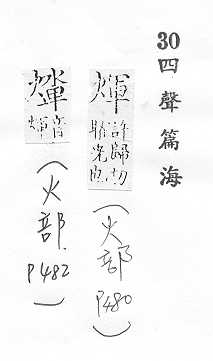 30四聲篇海
煇
許歸切
光也
(火部 P480)
音
輝
(火部 P482)